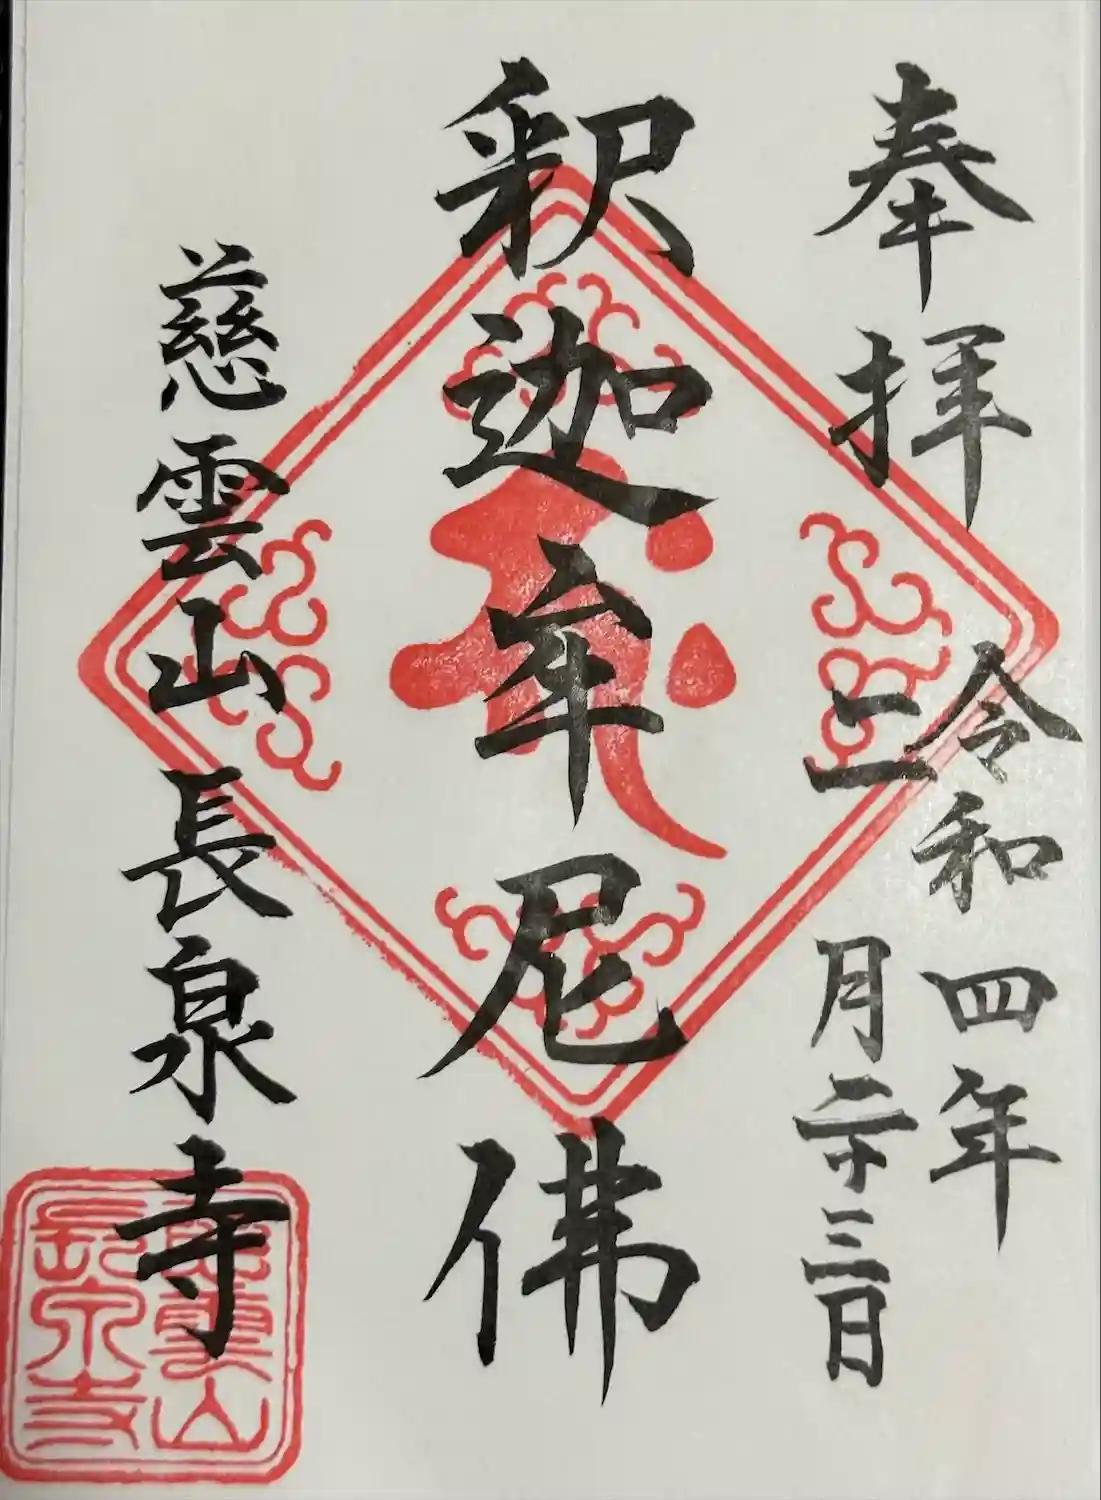 奉拝
令和四年
二月二十三日
釈迦牟尼佛
慈雲山長泉寺
慈雲山
長泉寺